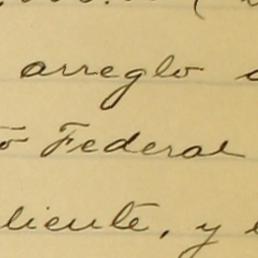 arreglo
Federal
liente, y